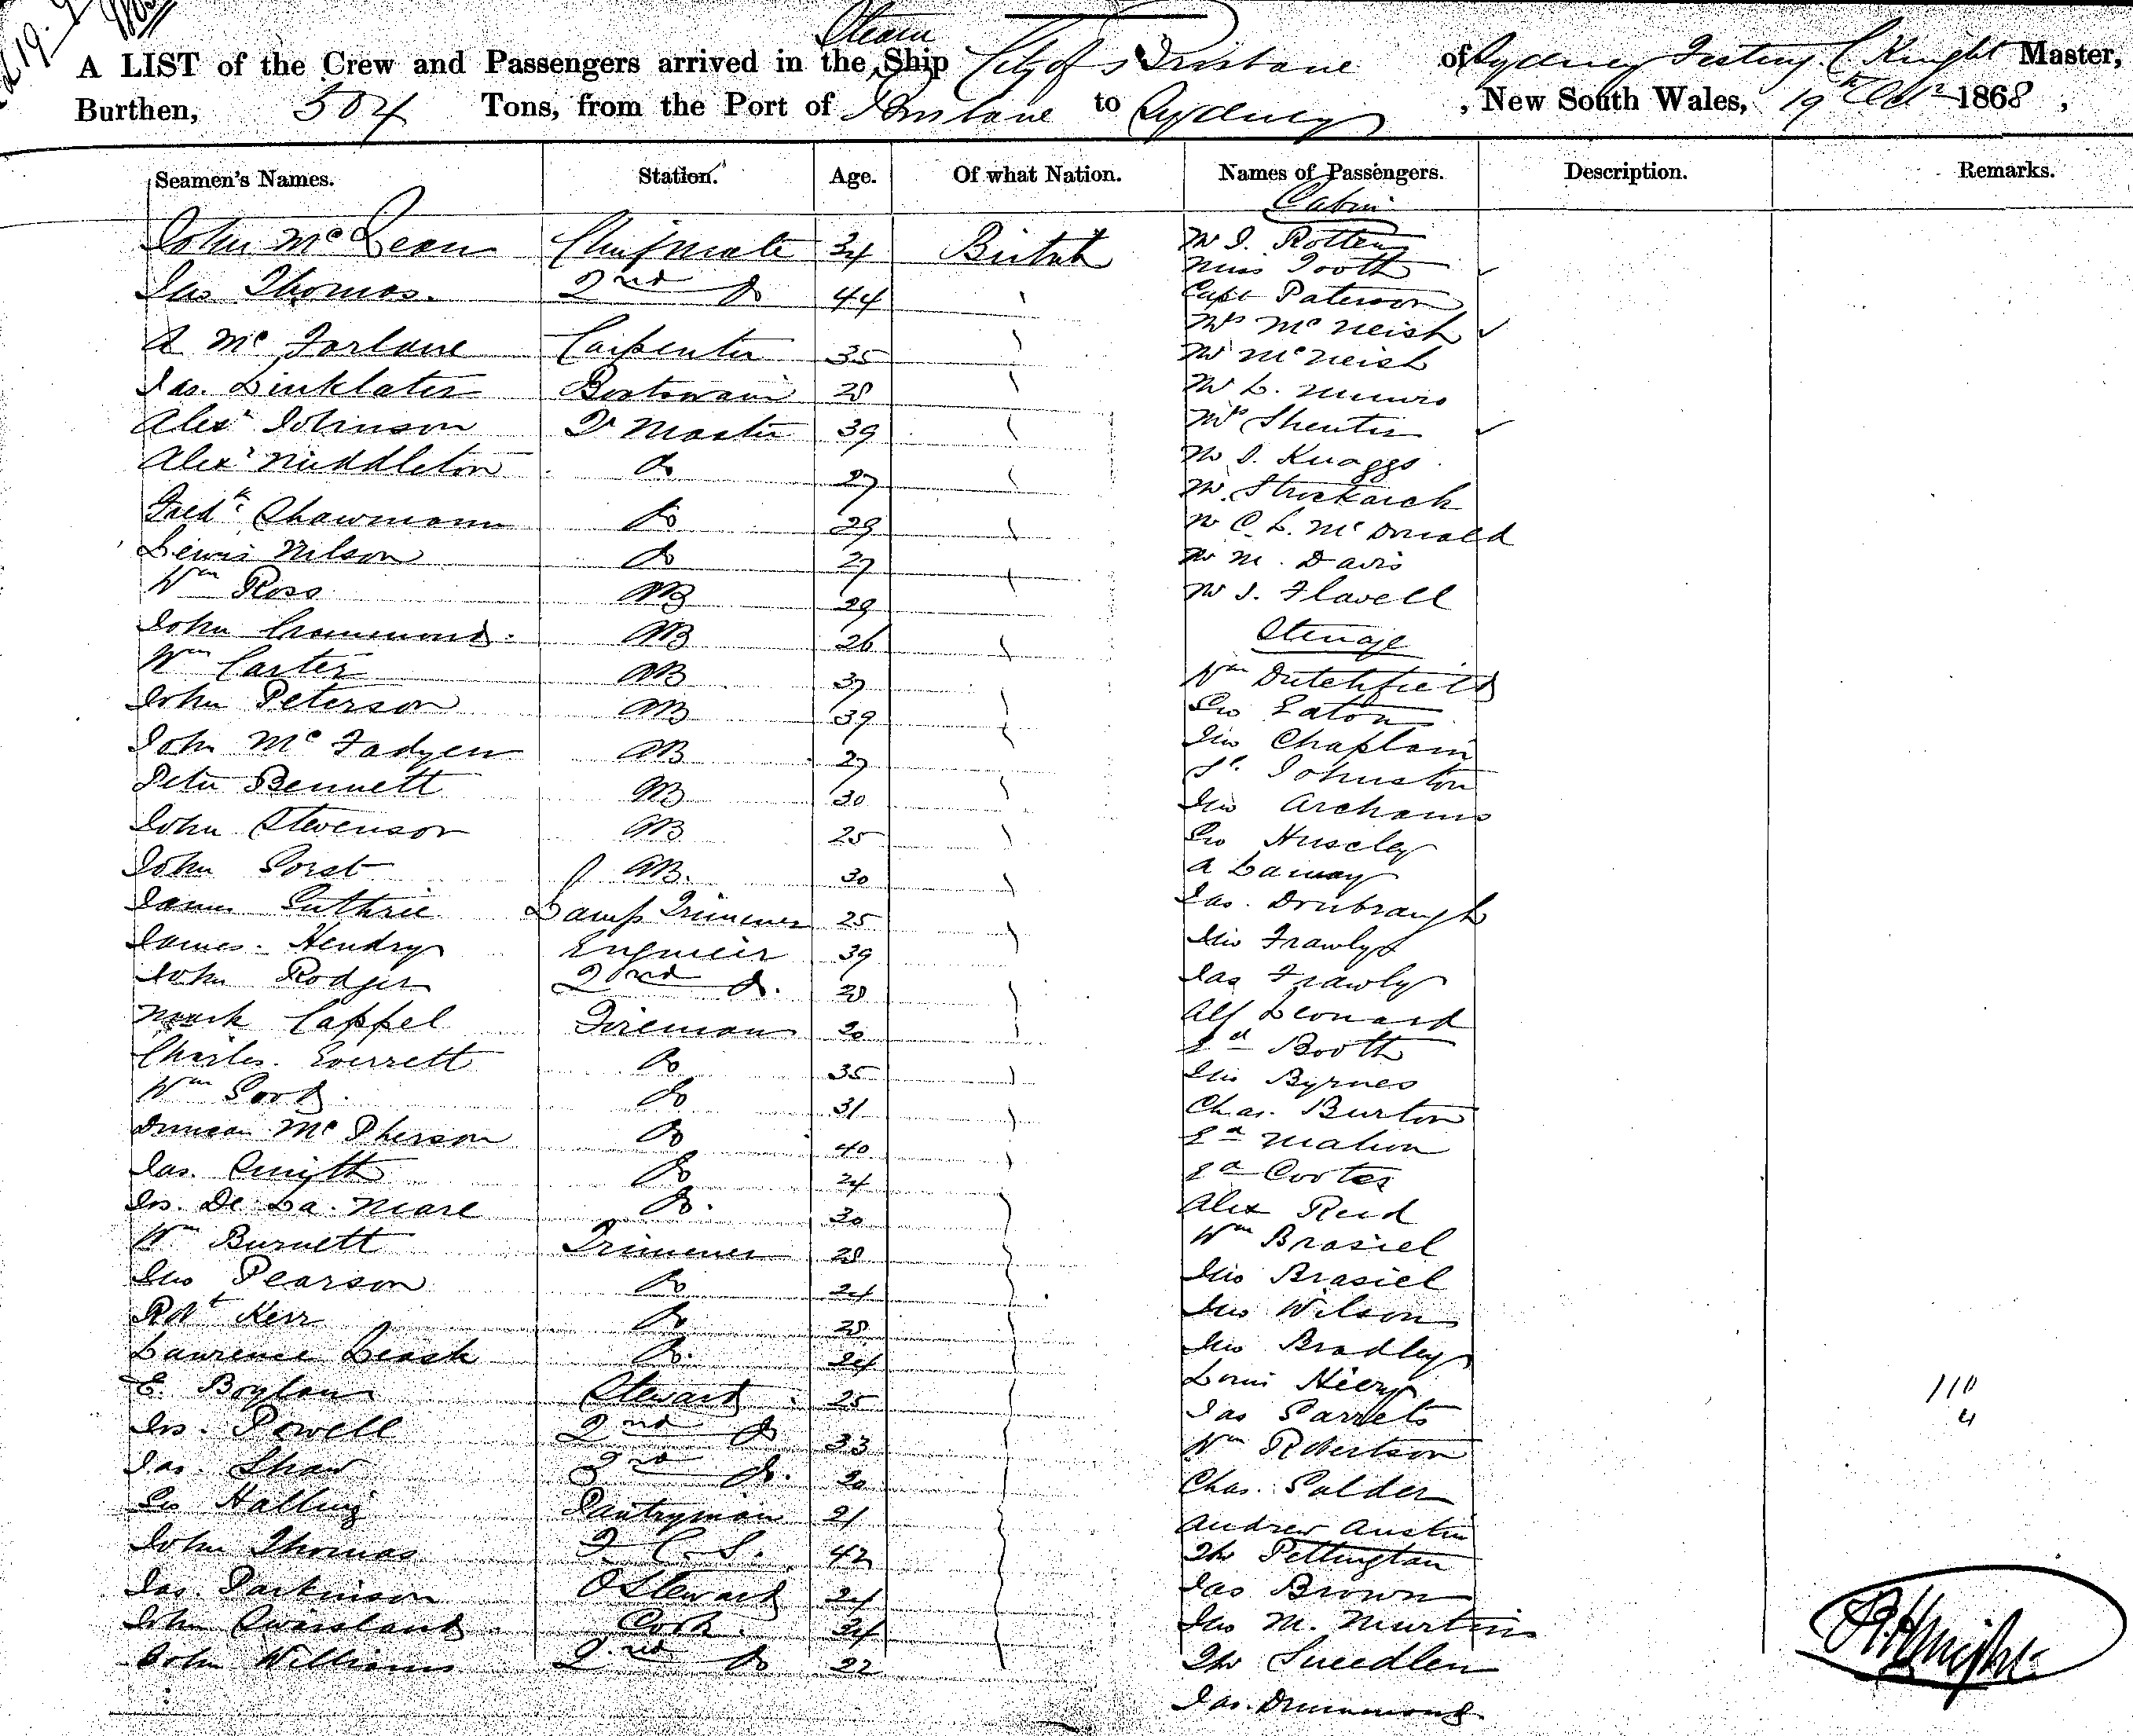 Steam
A LIST of the Crew and Passengers arrived in the Ship City of Brisbane of Sydney Knight Master,
Burthen, 504 Tons, from the Port of Brisbane to Sydney, New South Wales, 19th Octr 1868,
Seamen's Names. Station. Age. Of what Nation. Names of Passengers. Description. Remarks.
Cabin
John McLean Chief Mate 34 British Mr J. Rotten
Miss Tooth
Jas Thomas. 2nd Do 44 Capt Paterson
Mrs McNeish
A McFarlane Carpenter 35 Mr McNeish
Jas. Linklater Boatswain 28 Mr L. Munro
Alexr Johnson Qr Master 39
Alexr Middleton Do 27 Mr J. Knaggs
Fredk Do 29 Mr C. L. McDonald
Lewis Nilson Do 27 Mr M. Davis
Wm Ross AB 29 Mr J. Flavell
John AB 26 Steerage
Wm Carter AB 37 Wm Dutchfield
John Peterson AB 39 Geo Eaton
John McFadyen AB 27 Jno Chaplain
Johnston
Peter Bennett AB 30 Jno
John Stevenson AB 25 Geo
John AB. 30 A
James Guthrie Lamp Trimmer 25 Jas.
James. Hendry Engineer 39 Jno Frawly
John Rodger 2nd Do. 28 Jas Frawly
Mark Cappel Fireman 20 Alf Leonard
Charles. Everrett Do 35 Ed Booth
Jno Byrnes
Wm Good Do 31 Chas. Burton
Duncan McPherson Do 40 Ed Mahon
Jas. Smyth Do 24 Ed
Jos. De La. Mare Do. 30 Alex Reid
Wm Burnett Trimmer 28 Wm Brasiel
Jno Pearson Do 24 Jno Brasiel
Robt Kerr Do 28 Jno Wilson
Lawrence Leask Do. 24 Jno Bradley
E. Boylan Steward 25 Louis
Jos. Powell 2nd Do 33 Jas
Wm Robertson
Jas. Shaw 3rd Do. 20 Chas.
Geo Halling Pantryman 21 Andrew Austin
John Thomas F. C. S. 42 Pettington
Jas. Parkinson Steward 24 Jas Brown
John Cook. 34 Jno M.
John Williams 2nd Do 22
Jas. Drummond
110
4